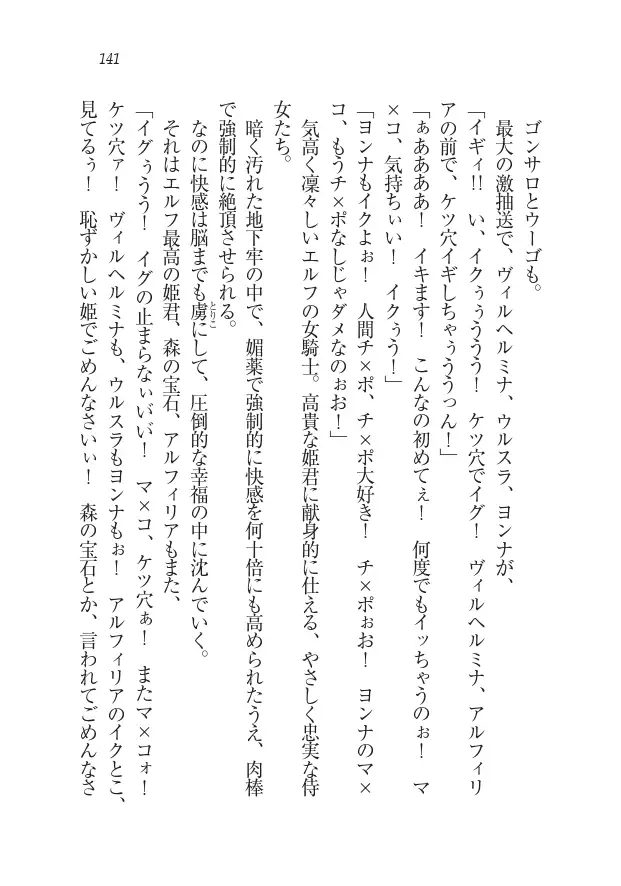 141
ゴンサロとウーゴも。
最大の激抽送で、ヴィルヘルミナ、ウルスラ、ヨンナが、
「イギィ!! い、イクぅぅううう！ ケツ穴でイグ！ ヴィルヘルミナ、アルフィリ
アの前で、ケツ穴イギしちゃぅううっん！」
「ぁああああ！ イキます！ こんなの初めてぇ！ 何度でもイッちゃうのぉ！ マ
×コ、気持ちぃい！ イクぅう！」
「ヨンナもイクよぉ！ 人間チ×ポ、チ×ポ大好き！ チ×ポぉお！ ヨンナのマ×
コ、もうチ×ポなしじゃダメなのぉお！」
気高く凜々しいエルフの女騎士。高貴な姫君に献身的に仕える、やさしく忠実な侍
女たち。
暗く汚れた地下牢の中で、媚薬で強制的に快感を何十倍にも高められたうえ、肉棒
で強制的に絶頂させられる。
なのに快感は脳までも虜にして、圧倒的な幸福の中に沈んでいく。
とりこ
それはエルフ最高の姫君、森の宝石、アルフィリアもまた、
「イグぅうう！ イグの止まらなぃいぃ！ マ×コ、ケツ穴ぁ！ またマ×コォ！
ケツ穴ァ！ ヴィルヘルミナも、ウルスラもヨンナもぉ！ アルフィリアのイクとこ、
見てるぅ！ 恥ずかしい姫でごめんなさいぃ！ 森の宝石とか、言われてごめんなさ